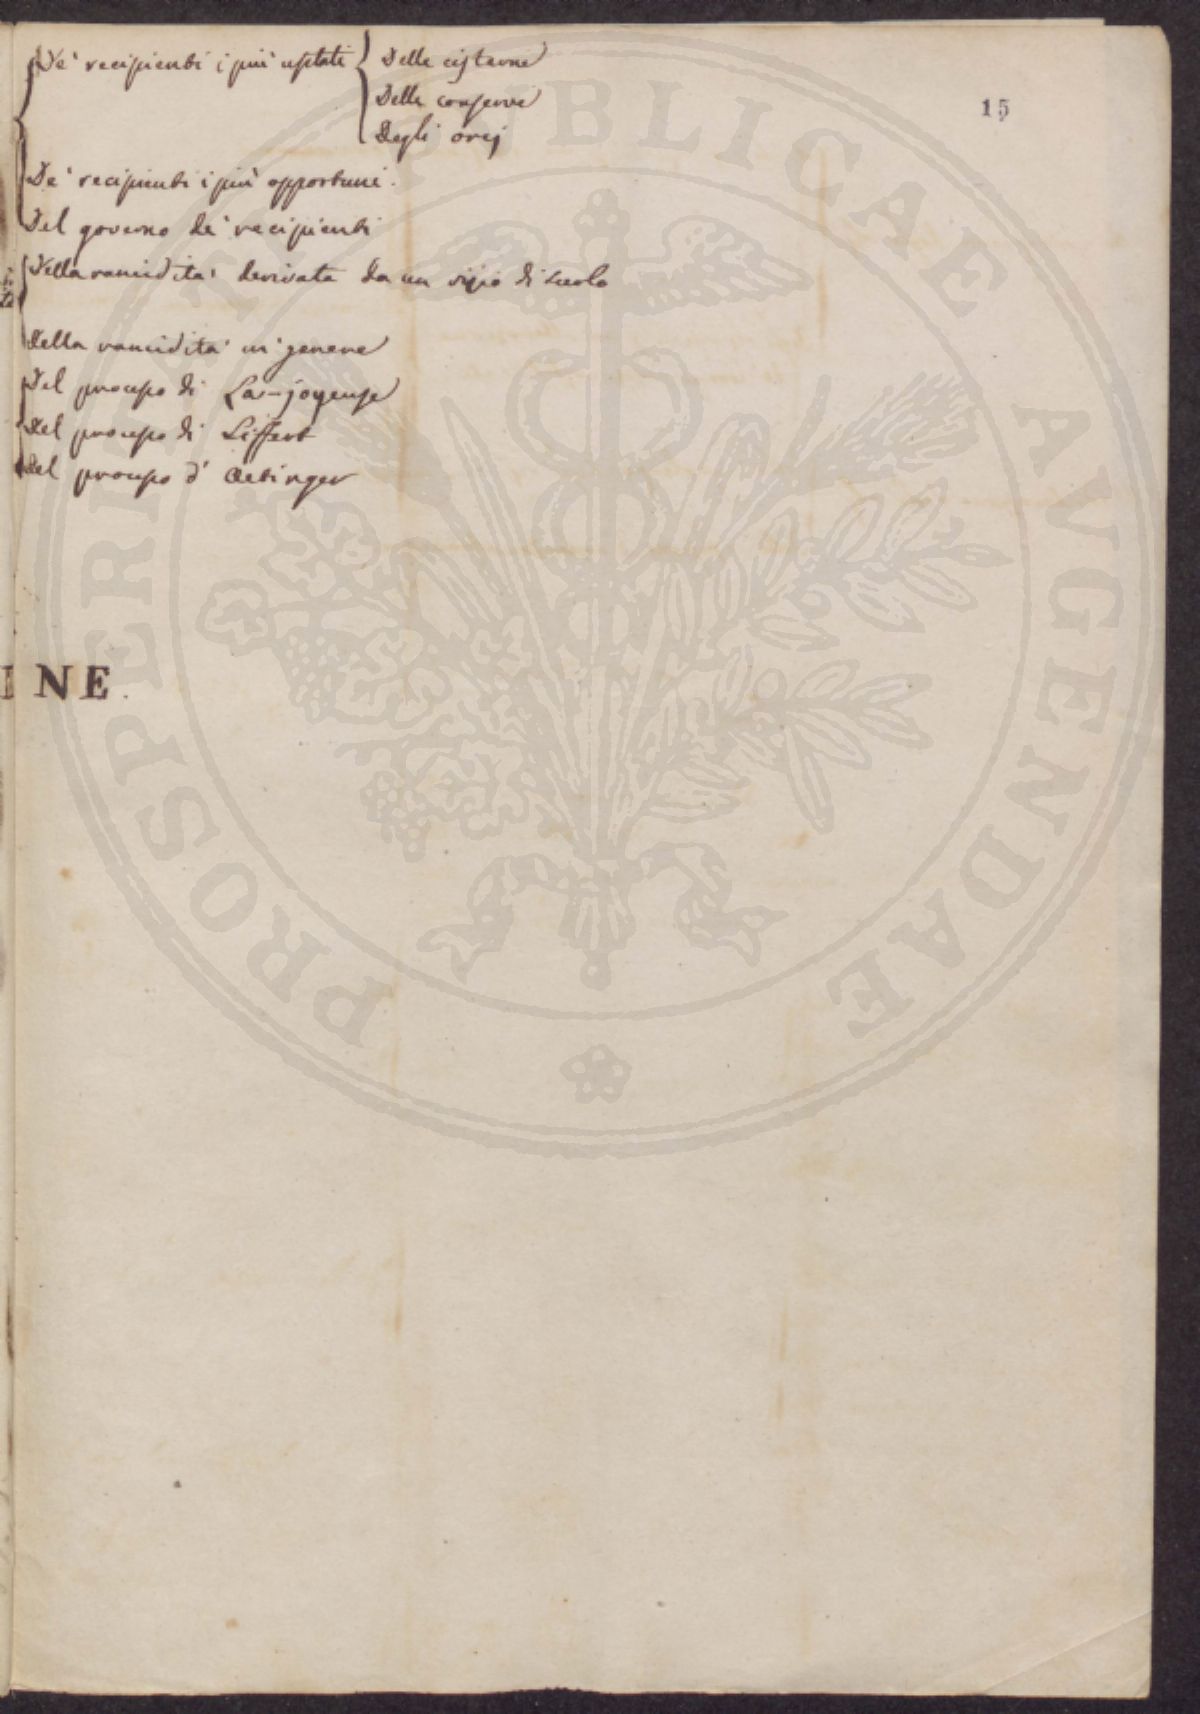 15
De' recipienti i più usitati
Delle cisterne
Delle conserve
Degli orcj
De' recipienti i più opportuni.
Del governo de' recipienti
Della rancidità derivata da un vizio di scolo
Della rancidità in genere
Del processo di La-joyeuse
Del processo di Siffert
Del processo d' Oetinger
INE.
PROSPERITATI PUBLICAE AVGENDAE